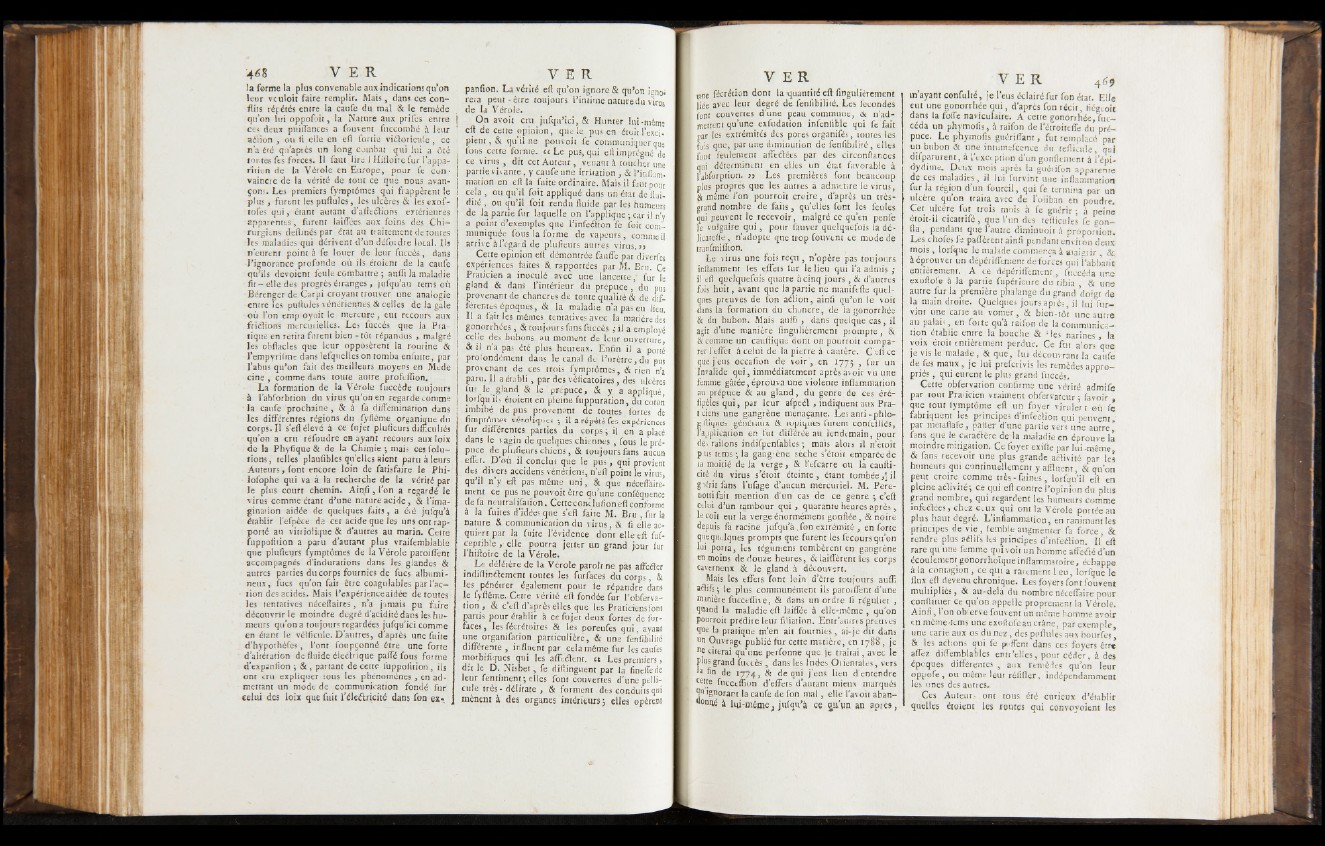 468 VER
la forme la plus convenable aux indications qu'on
leur vouloit faire remplir. Mais, dans ces con-
flits répétés entre la cause du mal & le remède
qu'on lui opposoit, la Nature aux prises entre
ces deux puissances a souvent succombé à leur
action, ou si elle en est sortie victorieuse, ce
n'a été qu'après un long combat qui lui a ôté
toutes ses forces. Il faut lire l'Histoire sur l'appa-
rition de la Vérole en Europe, pour se con-
vaincre de la vérité de tout ce que nous avan-
çons. Les premiers symptômes qui frappèrent le
plus, furent les pustules, les ulcères & les exos-
toses qui, étant autant d'affections extérieures
apparentes, furent laissées aux soins des Chi-
rurgiens destinés par état au traitement de toutes
les maladies qui dérivent d'un désordre local. Ils
n'eurent point à se louer de leur succès, dans
l'ignorance profonde où ils étoient de la cause
qu'ils devoient seule combattre; aussi la maladie
fit-elle des progrès étranges, jusqu'au tems où
Bérenger de Carpi croyant trouver une analogie
entre les pustules vénériennes & celles de la gale
où l'on employait le mercure, eut recours aux
frictions mercurielles. Les succès que la Pra-
tique en retira furent bien-tôt répandus, malgré
les obstacles que leur opposèrent la routine &
l'empyrisme dans lesquelles on tomba ensuite, par
l'abus qu'on fait des meilleurs moyens en Mede-
cine, comme dans toute autre profession.
La formation de la Vérole succède toujours
à l'absorbtion du virus qu'on en regarde comme
la cause prochaine, & à sa dissémination dans
les différentes régions du système organique du
corps. Il s'est élevé à ce sujet plusieurs difficultés
qu'on a cru résoudre en ayant recours aux loix
de la Physique & de la Chimie; mais ces solu-
tions, telles plausibles qu'elles aient paru à leurs
Auteurs, sont encore loin de satisfaire le Phi-
losophe qui va à la recherche de la vérité par
le plus court chemin. Ainsi, l'on a regardé le
virus comme étant d'une nature acide, & l'ima-
gination aidée de quelques faits, a été jusqu'à
établir l'espèce de cet acide que les uns ont rap-
porté au vitriolique & d'autres au marin. Cette
supposition a paru d'autant plus vraisemblable
que plusieurs symptômes de la Vérole paroissent
accompagnés d'indurations dans les glandes &
autres parties du corps fournies de sucs albumi-
neux, sucs qu'on sait être coagulables par l'ac-
tion des acides. Mais l'expérience aidée de toutes
les tentatives nécessaires, n'a jamais pu faire
découvrir le moindre degré d'acidité dans les hu-
meurs qu'on a toujours regardées jusqu'ici comme
en étant le véhicule. D'autres, d'après une suite
d'hypothèses, l'ont soupçonné être une sorte
d'altération de fluide électrique passé sous forme
d'expansion; &, partant de cette supposition, ils
ont cru expliquer tous les phénomènes, en ad-
mettant un mode de communication fondé sur
celui des loix que suit l'électricité dans son ex-
VER
pansion. La vérité est qu'on ignore & qu'on igno-
rera peut-être toujours l'intime nature du virus
de la Vérole.
On avoit cru jusqu'ici, & Hunter lui-même
est de cette opinion, que le pus en étoit l'exci-
pient, & qu'il ne pouvoit se communiquer que
sous cette forme. « Le pus, qui est imprégné de
ce virus, dit cet Auteur, venant à toucher une
partie vivante, y cause une irritation, & l'inflam-
mation en est la suite ordinaire. Mais il faut pour
cela, ou qu'il soit appliqué dans un état de flui-
dité, ou qu'il soit rendu fluide par les humeurs
de la partie sur laquelle on l'applique; car il n'y
a point d'exemples que l'infection se soit com-
muniquée sous la forme de vapeurs, comme il
arrive à l'égard de plusieurs autres virus. »
Cette opinion est démontrée fausse par diverses
expériences faites & rapportées par M. Bru. Ce
Praticien a inoculé avec une lancette, sur le
gland & dans l'intérieur du prépuce, du pus
provenant de chancres de toute qualité & de dif-
férentes époques, & la maladie n'a pas eu lieu.
Il a fait les mêmes tentatives avec la matière des
gonorrhées, & toujours sans succès; il a employé
celle des bubons au moment de leur ouverture,
& il n'a pas été plus heureux. Enfin il a porté
profondément dans le canal de l'urètre, du pus
provenant de ces trois symptômes, & rien n'a
paru. Il a établi, par des vésicatoires, des ulcères
sur le gland & le prépuce, & y a appliqué,
lorsqu'ils étoient en pleine suppuration, du coton
imbibé de pus provenant de toutes sortes de
symptômes véroliques; il a répété ses expériences
sur différentes parties du corps; il en a placé
dans le vagin de quelques chiennes, sous le pré-
puce de plusieurs chiens, & toujours sans aucun
effet. D'où il conclut que le pus, qui provient
des divers accidens vénériens, n'est point le virus,
qu'il n'y est pas même uni, & que nécessaire-
ment ce pus ne pouvoit être qu'une conséquence
de sa neutralisation. Cette conclusion est conforme
à la suites d'idées que s'est faite M. Bru, sur la
nature & communication du virus, & si elle ac-
quiert par la suite l'évidence dont elle est sus-
ceptible, elle pourra jetter un grand jour sur
l'histoire de la Vérole.
Le délétère de la Vérole paroît ne pas affecter
indistinctement toutes les surfaces du corps, &
les pénétrer également pour se répandre dans
le système. Cette vérité est fondée sur l'observa-
tion, & c'est d'après elles que les Praticiens sont
partis pour établir à ce sujet deux sortes de sur-
faces, les sécrétoires & les poreuses qui, ayant
une organisation particulière, & une sensibilité
différente, influent par cela même sur les causes
morbifiques qui les affectent. « Les premiers,
dit le D. Nisbet, se distinguent par la finesse de
leur sentiment; elles sont couvertes d'une pelli-
cule très-délicate, & forment des conduits qui
mènent à des organes intérieurs; elles opèrent
VER
une sécrétion dont la quantité est singulièrement
liée avec leur degré de sensibilité. Les secondes
sont couvertes d'une peau commune, & n'ad-
mettent qu'une exsudation insensible qui se fait
par les extrémités des pores organisés, toutes les
fois que, par une diminution de sensibilité, elles
sont seulement affectées par des circonstances
qui déterminent en elles un état favorable à
l'absorption. » Les premières sont beaucoup
plus propres que les autres à admettre le virus,
& même l'on pourroit croire, d'après un très-
grand nombre de faits, qu'elles sont les seules
qui peuvent le recevoir, malgré ce qu'en pense
le vulgaire qui, pour sauver quelquefois la dé-
licatesse, n'adopte que trop souvent ce mode de
transmission.
Le virus une fois reçu, n'opère pas toujours
instamment les effets sur le lieu qui l'a admis;
il est quelquefois quatre à cinq jours, & d'autres
fois huit, avant que la partie ne manifeste quel-
ques preuves de son action, ainsi qu'on le voit
dans la formation du chancre, de la gonorrhée
& du bubon. Mais aussi, dans quelque cas, il
agit d'une manière singulièrement prompte, &
& comme un caustique dont on pourroit compa-
rer l'effet à celui de la pierre à cautère. C'est ce
que j'eus occasion de voir, en 1773, sur un
Invalide qui, immédiatement après avoir vu une
femme gâtée, éprouva une violente inflammation
au prépuce & au gland, du genre de ces éré-
sipèles qui, par leur aspect, indiquent aux Pra-
ticiens une gangrène menaçante. Les anti-phlo-
gistiques généraux & topiques furent conseillés,
l'application en fut différée au lendemain, pour
des raisons indispensables; mais alors il n'étoit
plus tems; la gangrène sèche s'étoit emparée de
la moitié de la verge, & l'escarre ou la causti-
cité du virus s'étoit éteinte, étant tombée, il
guérit sans l'usage d'aucun mercuriel. M. Pere-
notti fait mention d'un cas de ce genre; c'est
celui d'un tambour qui, quarante heures après,
le coït eut la verge énormément gonflée, & noire
depuis sa racine jusqu'à son extrémité, en sorte
que quelques prompts que furent les secours qu'on
lui porta, les tégumens tombèrent en gangrène
en moins de douze heures, & laissèrent les corps
caverneux & le gland à découvert.
Mais les effets sont loin d'être toujours aussi
actifs; le plus communément ils paroissent d'une
manière successive, & dans un ordre si régulier,
quand la maladie est laissée à elle-même, qu'on
pourroit prédire leur filiation. Entr'autres preuves
que la pratique m'en ait fournies, ai-je dit dans
un Ouvrage publié sur cette matière, en 1788, je
ne citerai qu'une personne que je traitai, avec le
plus grand succès, dans les Indes Orientales, vers
la fin de 1774, & de qui j'eus lieu d'entendre
cette succession d'effets d'autant mieux marqués
qu'ignorant la cause de son mal, elle l'avoit aban-
donné à lui-même, jusqu'à ce qu'un an après,
VER 469
m'ayant consulté, je l'eus éclairé sur son état. Elle
eut une gonorrhée qui, d'après son récit, siégeoit
dans la fosse naviculaire. A cette gonorrhée, suc-
céda un phymosis, à raison de l'étroitesse du pré-
puce. Le phymosis guérissant, fut remplacé par
un bubon & une intumescence du testicule, qui
disparurent, à l'exception d'un gonflement à l'épi-
dydime. Deux mois après la guérison apparente
de ces maladies, il lui survint une inflammation
sur la région d'un sourcil, qui se termina par un
ulcère qu'on traita avec de l'oliban en poudre.
Cet ulcère fut trois mois à se guérir; à peine
étoit-il cicatrisé, que l'un des testicules se gon-
fla, pendant que l'autre diminuoit à proportion.
Les choses se passèrent ainsi pendant environ deux
mois, lorsque le malade commença à maigrir, &
à éprouver un dépérissement de forces qui l'abbattit
entièrement. A ce dépérissement, succéda une
exostose à la partie supérieure du tibia, & une
autre sur la première phalange du grand doigt de
la main droite. Quelques jours après, il lui sur-
vint une carie au vomer, & bien-tôt une autre
au palais, en sorte qu'à raison de la communica-
tion établie entre la bouche & les narines, la
voix étoit entièrement perdue. Ce fut alors que
je vis le malade, & que, lui découvrant la cause
de ses maux, je lui prescrivis les remèdes appro-
priés, qui eurent le plus grand succès.
Cette observation confirme une vérité admise
par tout Praticien vraiment observateur; savoir,
que tout symptôme est un foyer virulent où se
fabriquent les principes d'infection qui peuvent,
par métastase, passer d'une partie vers une autre,
sans que le caractère de la maladie en éprouve la
moindre mitigation. Ce foyer existe par lui-même,
& sans recevoir une plus grande activité par les
humeurs qui continuellement y affluent, & qu'on
peut croire comme très-saines, lorsqu'il est en
pleine activité; ce qui est contre l'opinion du plus
grand nombre, qui regardent les humeurs comme
infectées, chez ceux qui ont la Vérole portée au
plus haut degré. L'inflammation, en ranimant les
principes de vie, semble augmenter sa force, &
rendre plus actifs les principes d'infection. Il est
rare qu'une femme qui voit un homme affecté d'un
écoulement gonorrhoïque inflammatoire, échappe
à la contagion, ce qui a rarement lieu, lorsque le
flux est devenu chronique. Les foyers sont souvent
multipliés, & au-delà du nombre nécessaire pour
constituer ce qu'on appelle proprement la Vérole.
Ainsi, l'on observe souvent un même homme avoir
en même-tems une exostose au crâne, par exemple,
une carie aux os du nez, des pustules aux bourses,
& les actions qui se passent dans ces foyers être
assez dissemblables entr'elles, pour céder, à des
époques différentes, aux remèdes qu'on leur
oppose, ou même leur résister, indépendamment
les unes des autres.
Ces Auteurs ont tous été curieux d'établir
quelles étoient les routes qui convoyoient les